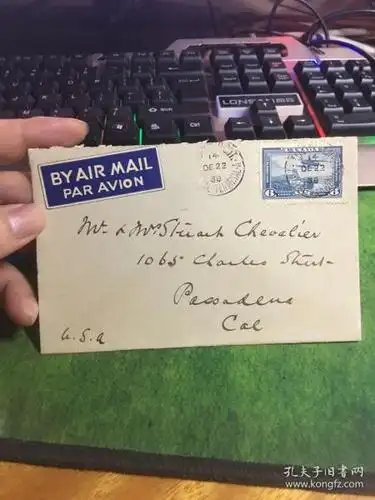 BY AIR MAIL
PAR AVION
14
DE 22
39
CANADA
6 6
Mr & Mrs Stuart Chevalier
1065 Charles Street
Passadena
Cal
U.S.a
孔夫子旧书网
www.kongfz.com